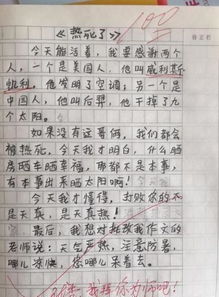 《热死了》 100
今天能活着，我要感谢两个
人，一个是美国人，他叫威利斯
·凯利。他发明了空调，另一个是
中国人，他叫后羿，他干掉了九
个太阳。
如果没有这哥俩，我们都会
被热死。今天我才明白，什么晒
房晒车晒幸福，那都不是本事，
有本事出来晒太阳啊！
今天我才懂得，打败你的不
是天真，是天真热！
最后，我想对批改我作文的
老师说：天气炎热，注意防暑，
哪儿凉快，您哪儿呆着去。
我拜你为师吧！